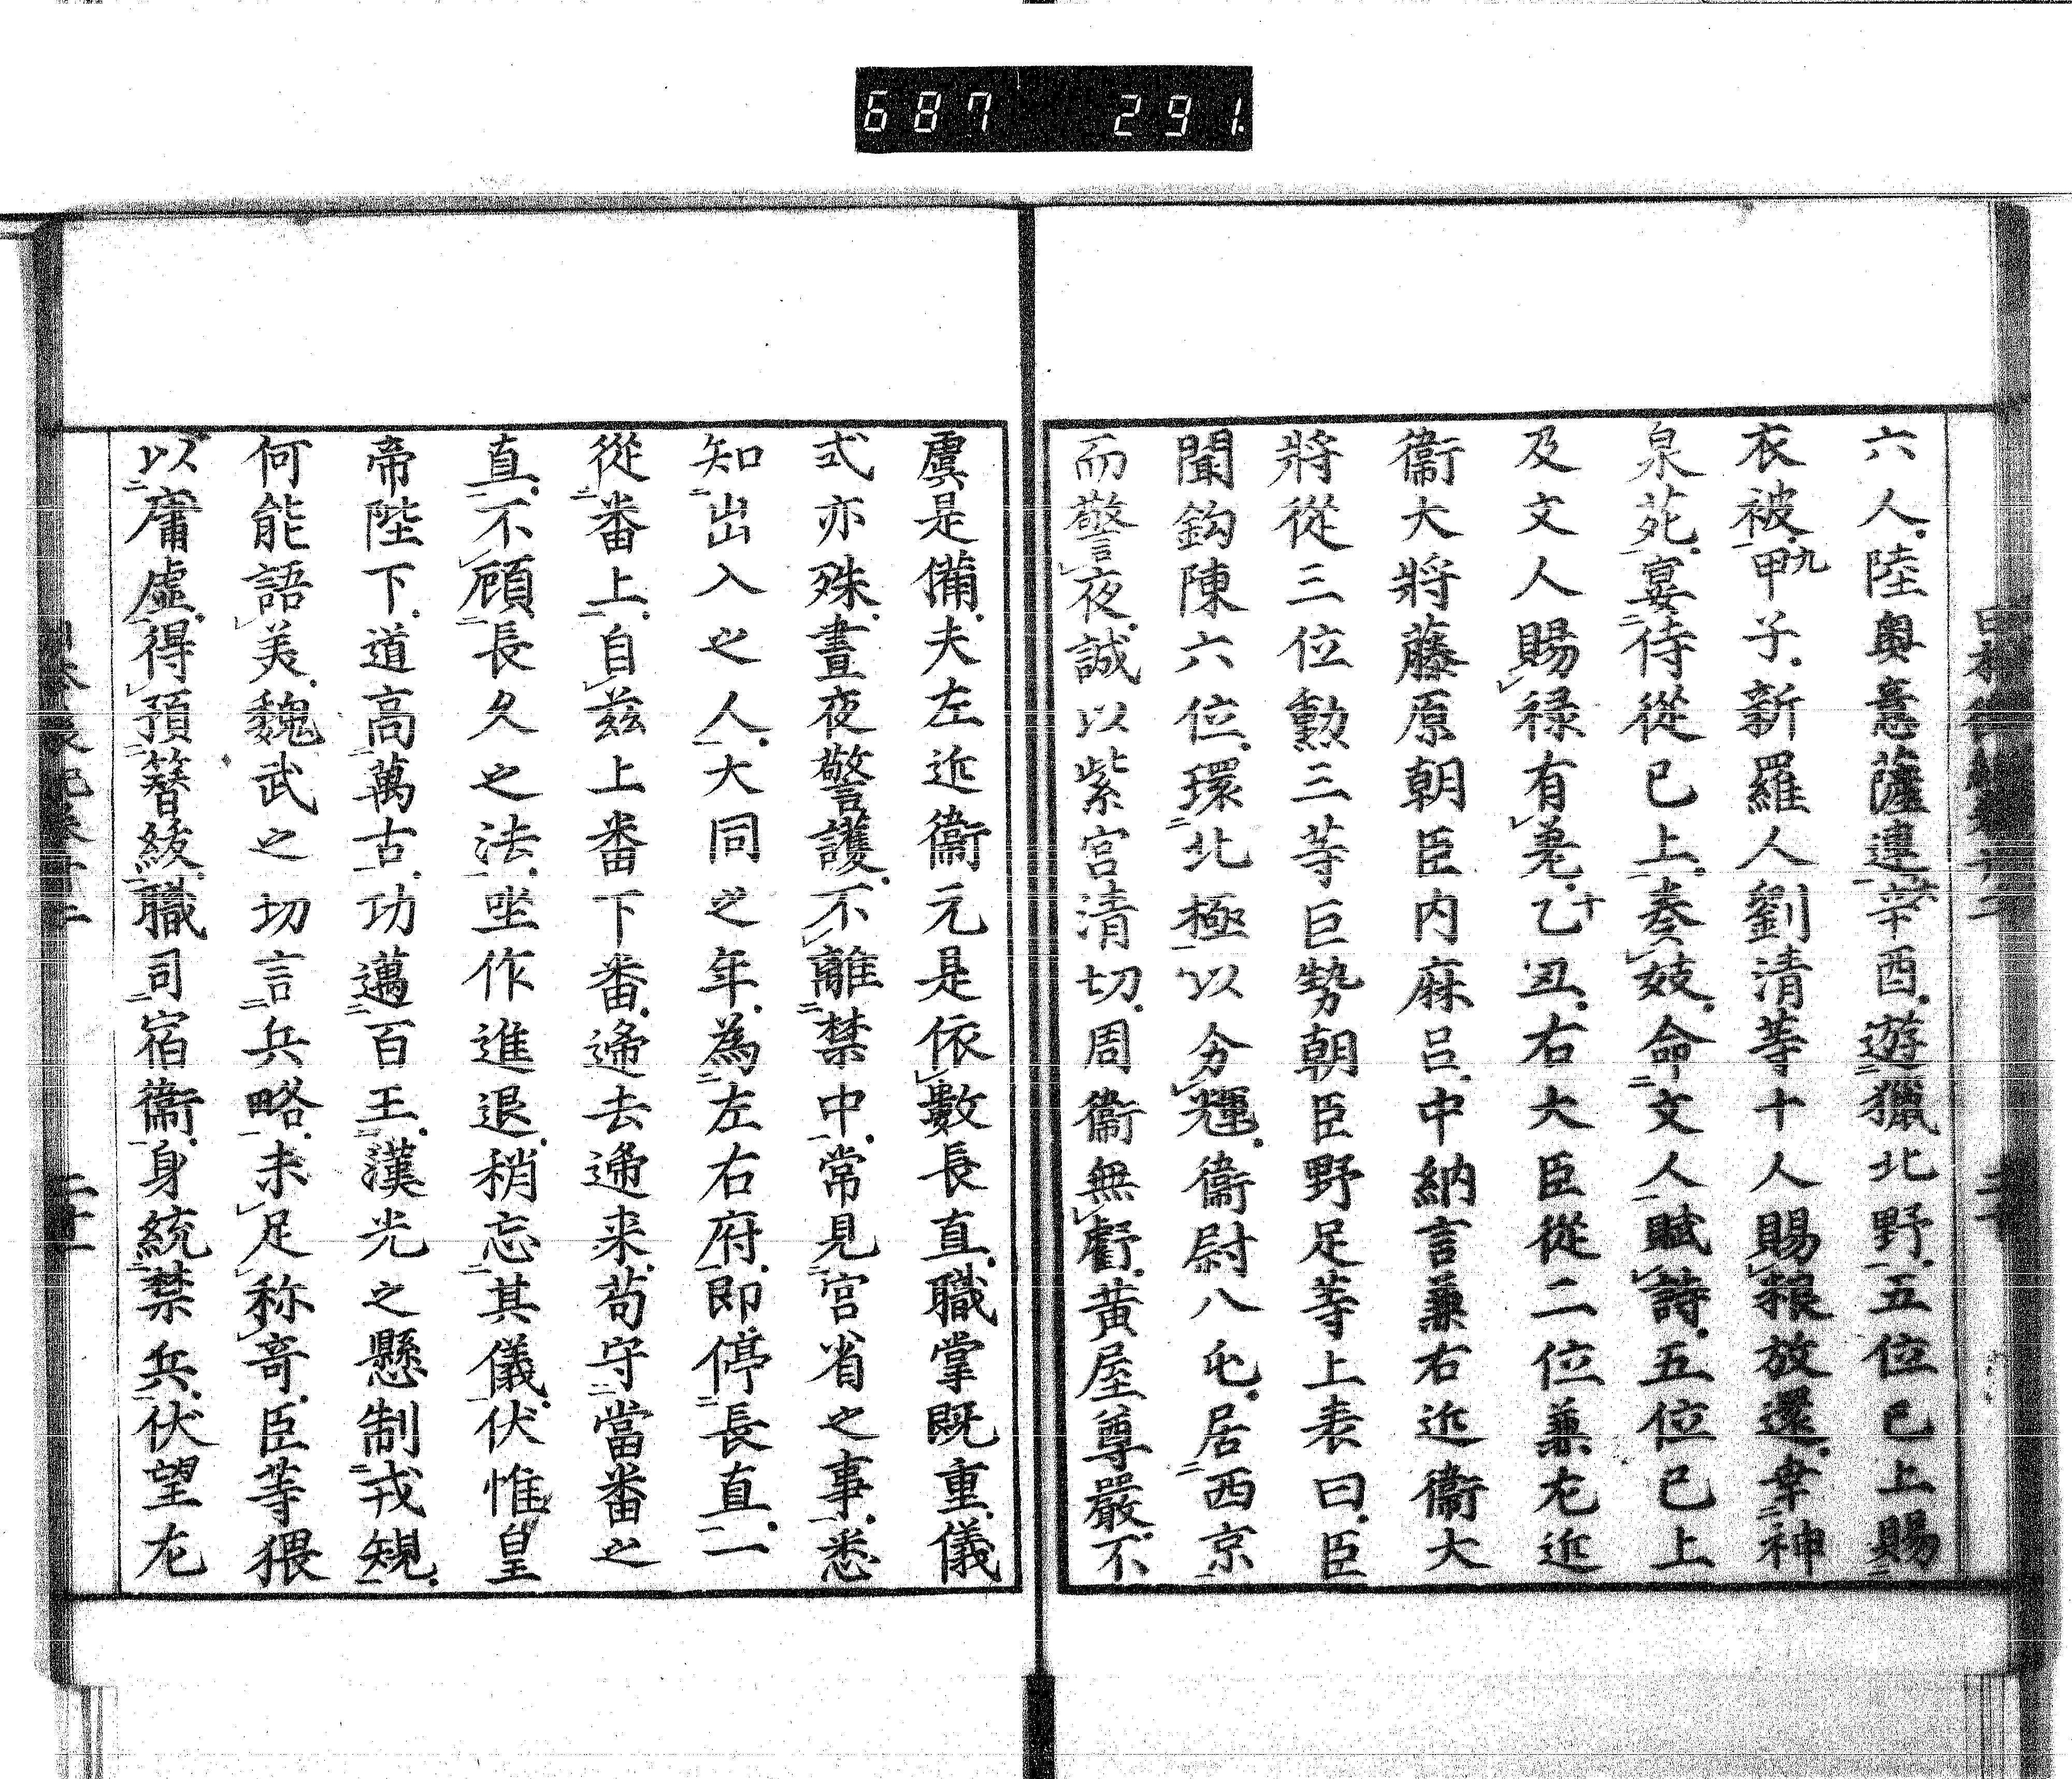 687 291.
六人陸奥意薩連辛酉遊獵北野五位已上賜
衣被甲九子新羅人劉清等十人賜粮放還幸神
泉苑宴侍從已上奏妓命文人賦詩五位已上
及文人賜禄有差乙十丑右大臣從二位兼左近
衞大將藤原朝臣内麻呂中納言兼右近衞大
將從三位勳三等巨勢朝臣野足等上表曰臣
聞鈎陳六位環北極以分輝衞尉八屯居西京
而警夜誠以紫宮清切周衞無虧黄屋尊嚴不
虞是備夫左近衞元是依數長直職掌既重儀
式亦殊晝夜警護不離禁中常見宮省之事悉
知出入之人大同之年為左右府即停長直一
從番上自茲上番下番遞去遞来苟守當番之
直不顧長久之法坐作進退稍忘其儀伏惟皇
帝陛下道高萬古功邁百王漢光之懸制戎䂓
何能語美魏武之切言兵略未足称奇臣等猥
以庸虚得預簪紱職司宿衞身統禁兵伏望左